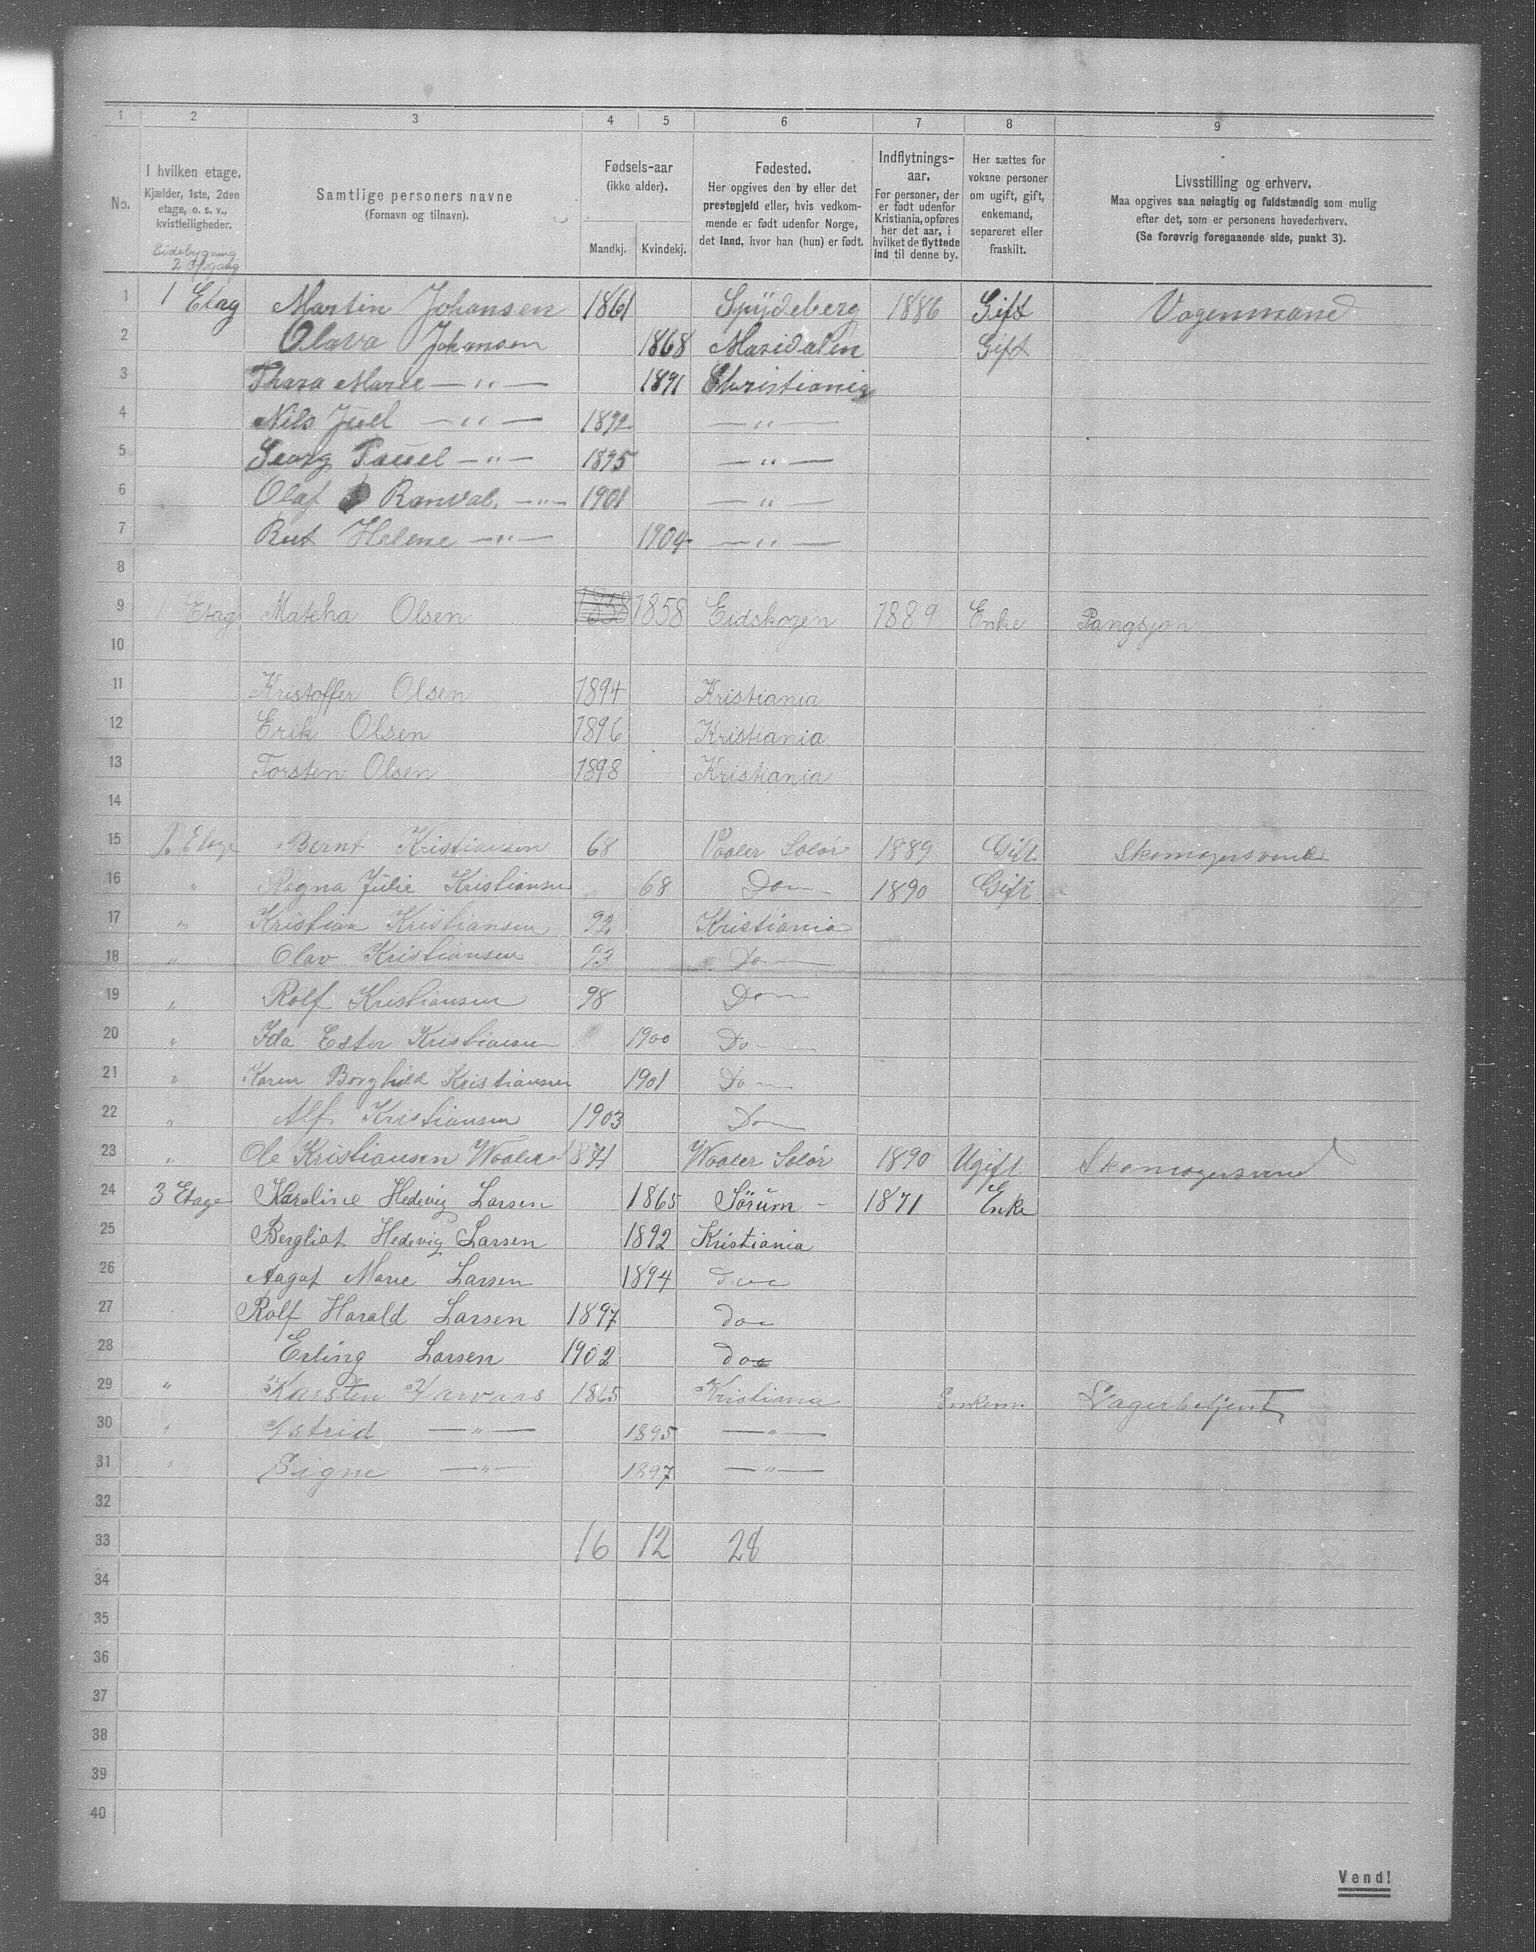 1 2 3 4 5 6 7 8 9
No.
I hvilken etage.
Kjælder, 1ste, 2den
etage, o. s. v.,
kvistleiligheder.
Sidebygning
2 Opgang
Samtlige personers navne
(Fornavn og tilnavn).
Fødsels-aar
(ikke alder).
Mandkj. Kvindekj.
Fødested.
Her opgives den by eller det
prestegjeld eller, hvis vedkom-
mende er født udenfor Norge,
det land, hvor han (hun) er født.
Indflytnings-
aar.
For personer, der
er født udenfor
Kristiania, opføres
her det aar, i
hvilket de flyttede
ind til denne by.
Her sættes for
voksne personer
om ugift, gift,
enkemand,
separeret eller
fraskilt.
Livsstilling og erhverv.
Maa opgives saa nøiagtig og fuldstændig som mulig
efter det, som er personens hovederhverv.
(Se forøvrig foregaaende side, punkt 3).
1 1 Etag Martin Johansen 1861 Spydeberg 1886 Gift Vogenmand
2 Olava Johansen 1868 Maridalen Gift
3 Thora Marie —"— 1891 Christiania
4 Nils Juel —"— 1892 —"—
5 Georg Pauel —"— 1895 —"—
6 Olaf Ranval. —"— 1901 —"—
7 Rut Helene —"— 1904 —"—
8
9 1 Etag Matcha Olsen 1858 1858 Eidskogen 1889 Enke Pangsjon
10
11 Kristoffer Olsen 1894 Kristiania
12 Erik Olsen 1896 Kristiania
13 Torsten Olsen 1898 Kristiania
14
15 2 Etage Bernt Kristiansen 68 Vaaler Solør 1889 Gift Skomagersvend
16 " Ragna Julie Kristiansen 68 Do — 1890 Gift
17 " Kristian Kristiansen 92 Kristiania
18 " Olav Kristiansen 93 Do —
19 " Rolf Kristiansen 98 Do —
20 " Ida Ester Kristiansen 1900 Do —
21 " Karen Borghild Kristiansen 1901 Do —
22 " Alf Kristiansen 1903 Do —
23 " Ole Kristiansen Waaler 1871 Waaler Solør 1890 Ugift Skomagersvend
24 3 Etage Karoline Hedevig Larsen 1865 Sørum - 1871 Enke
25 Bergliot Hedevig Larsen 1892 Kristiania
26 Aagot Marie Larsen 1894 do
27 Rolf Harald Larsen 1897 do
28 Erling Larsen 1902 do
29 " Karsten 1865 Kristiana Enkem. Lagerbetjent
30 " Astrid —"— 1895 —"—
31 " Signe —"— 1897 —"—
32
33 16 12 28
34
35
36
37
38
39
40
Vend!